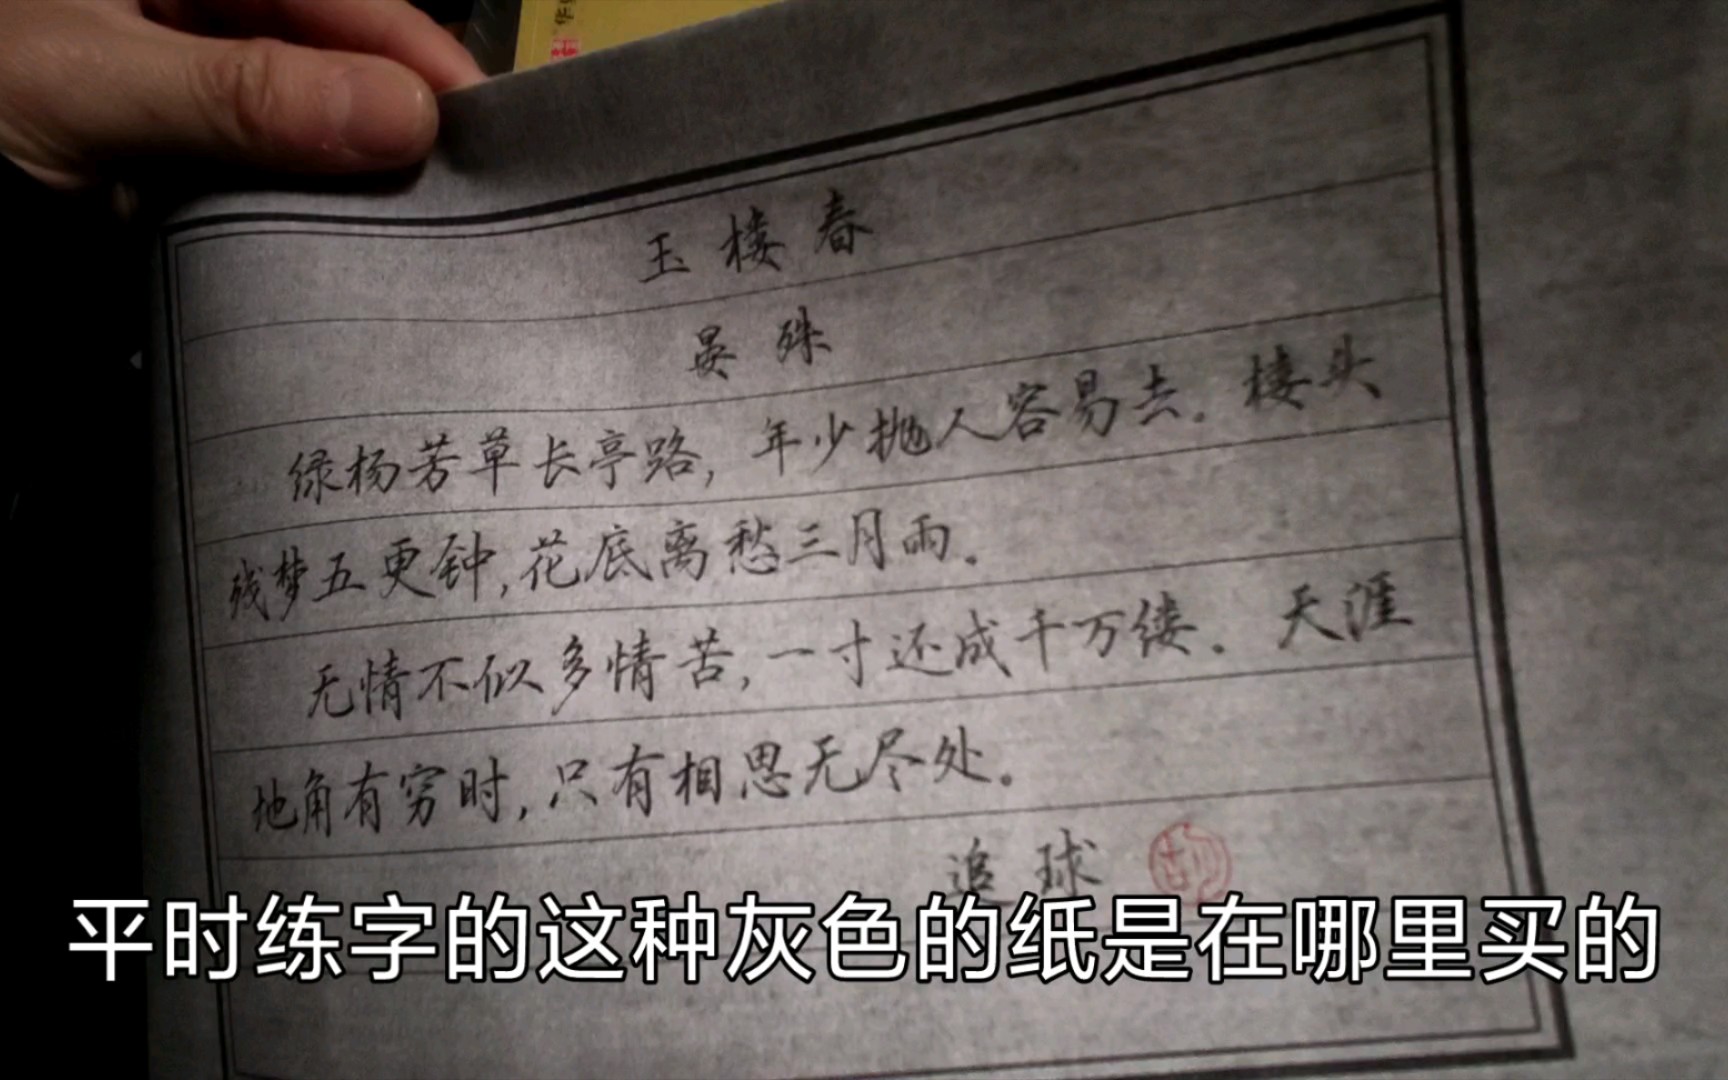 玉楼春
晏殊
绿杨芳草长亭路，年少抛人容易去。楼头
残梦五更钟，花底离愁三月雨。
无情不似多情苦，一寸还成千万缕。天涯
地角有穷时，只有相思无尽处。
追球
平时练字的这种灰色的纸是在哪里买的